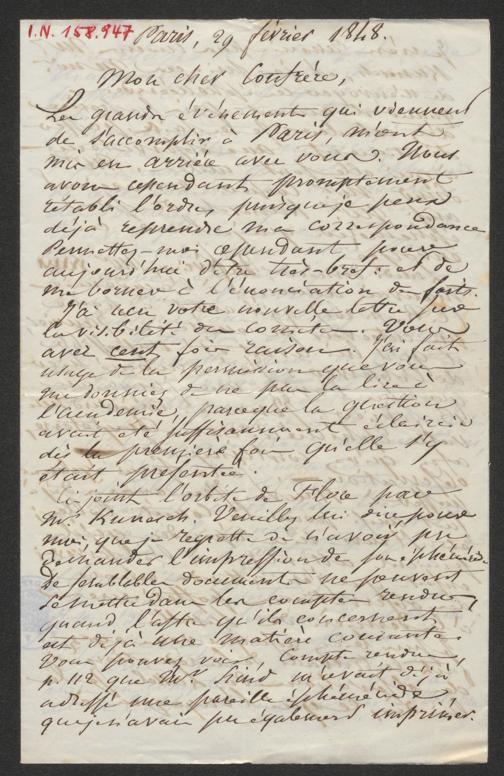 I.N. 158.947
Paris, 29 février 1848.
Mon cher Confrère,
Les grands événements qui viennent
de s'accomplir à Paris, m'ont
mis en arrière avec vous. Nous
avons cependant promptement
rétabli l'ordre, puisque je peux
déjà reprendre ma correspondance
Permettez-moi cependant pour
aujourd'hui d'être très-bref, et de
me borner à l'énonciation de faits.
J'ai reçu votre nouvelle lettre sur
la visibilité des comètes. Vous
avez cent fois raison. J'ai fait
usage de la permission que vous
me donniez de ne pas la lire à
l'académie, parceque la question
avait été suffisamment éclaircie
dès la première fois qu'elle s'y
était présentée.
Ci joint l'orbite de Flore par
Mr. Kunesch. Veuillez lui dire pour
moi, que je regrette de n'avoir pu
demander l'impression de son éphéméride
De semblables documents ne peuvent
se mettre dans les comptes rendus,
quand l'astre qu'ils concernent
est déjà une matière courante.
Vous pouvez voir, Compte rendu,
p. 112 que Mr Hind m'avait déjà
adressé une pareille éphéméride
que je n'avais pu également imprimer.